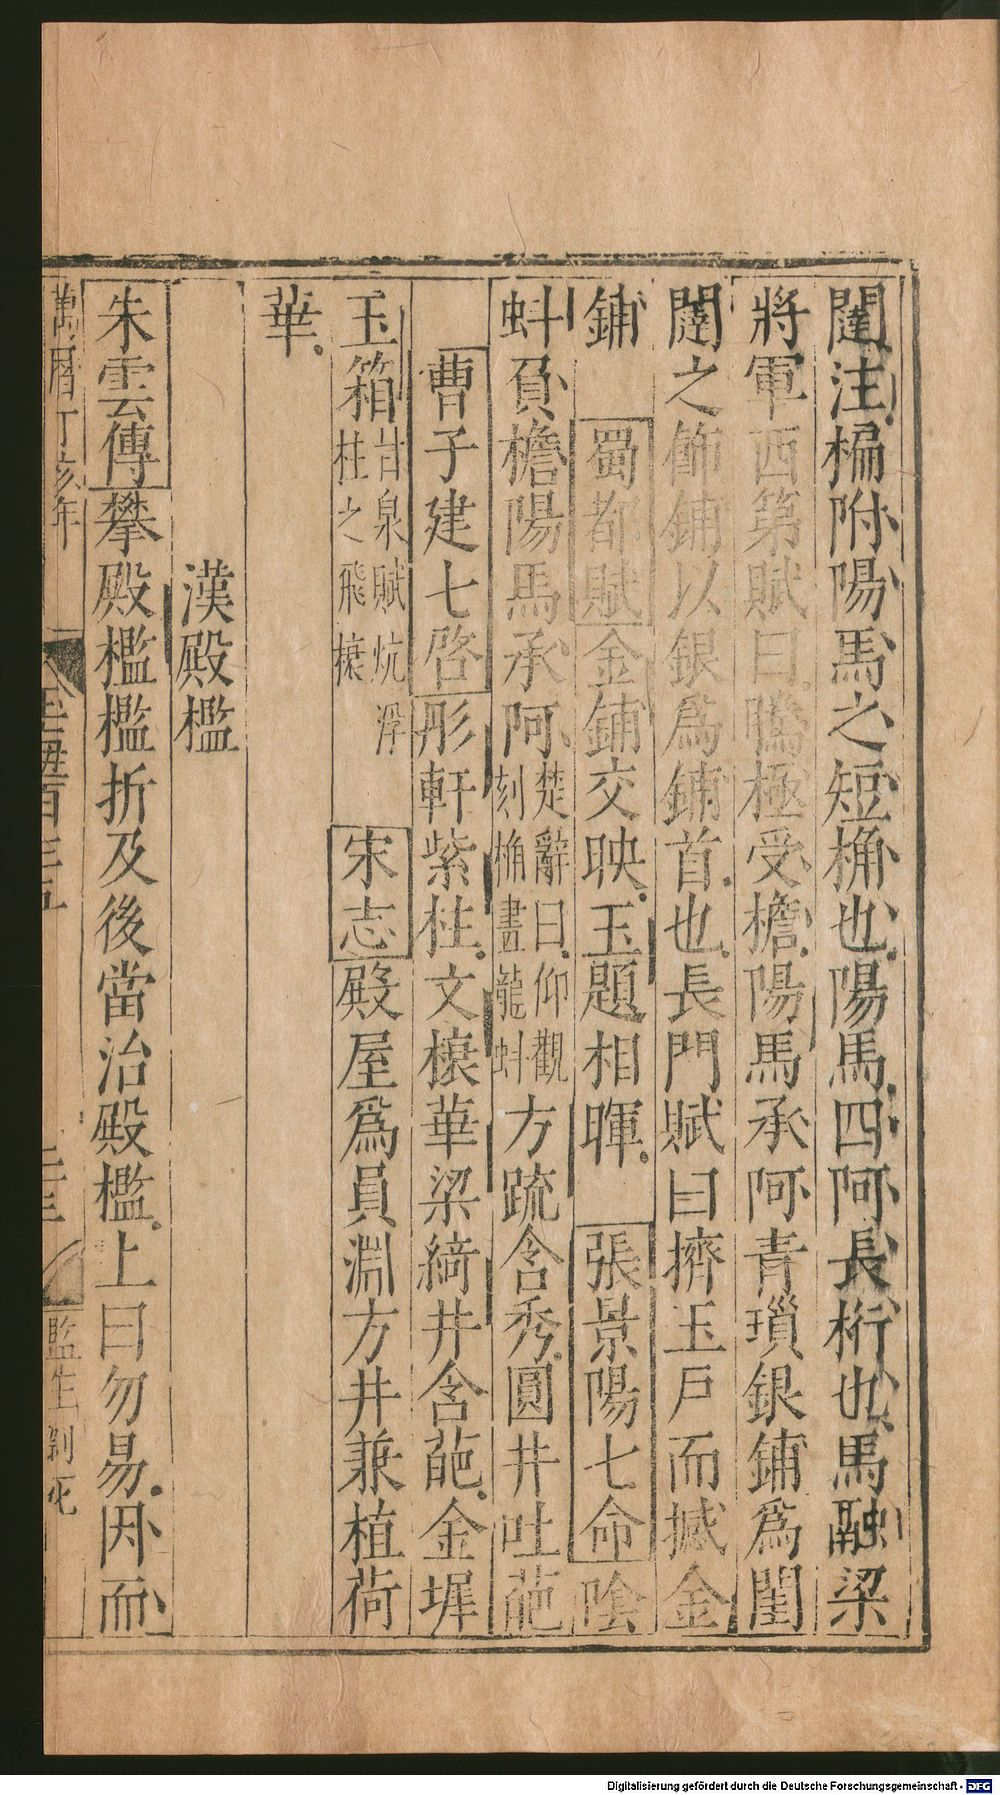 闥注楄附陽馬之短桷也陽馬四阿長桁也馬融梁
將軍西第賦曰騰極受檐陽馬承阿青瑣銀鋪爲閨
闥之飾鋪以銀爲鋪首也長門賦曰擠玉戸而撼金
鋪 蜀都賦金鋪交映玉題相暉 張景陽七命陰
蚪負檐陽馬承阿楚辭曰仰觀刻桷畫龍蚪方疏含秀圓井吐葩
曹子建七啓彤軒紫柱文榱華梁綺井含葩金墀
玉箱甘泉賦炕浮柱之飛榱 宋志殿屋爲員淵方井兼植荷
華
漢殿檻
朱雲傳攀殿檻檻折及後當治殿檻上曰勿易因而
萬曆丁亥年
玉海百三五
監生劉
Digitalisierung gefördert durch die Deutsche Forschungsgemeinschaft - DFG